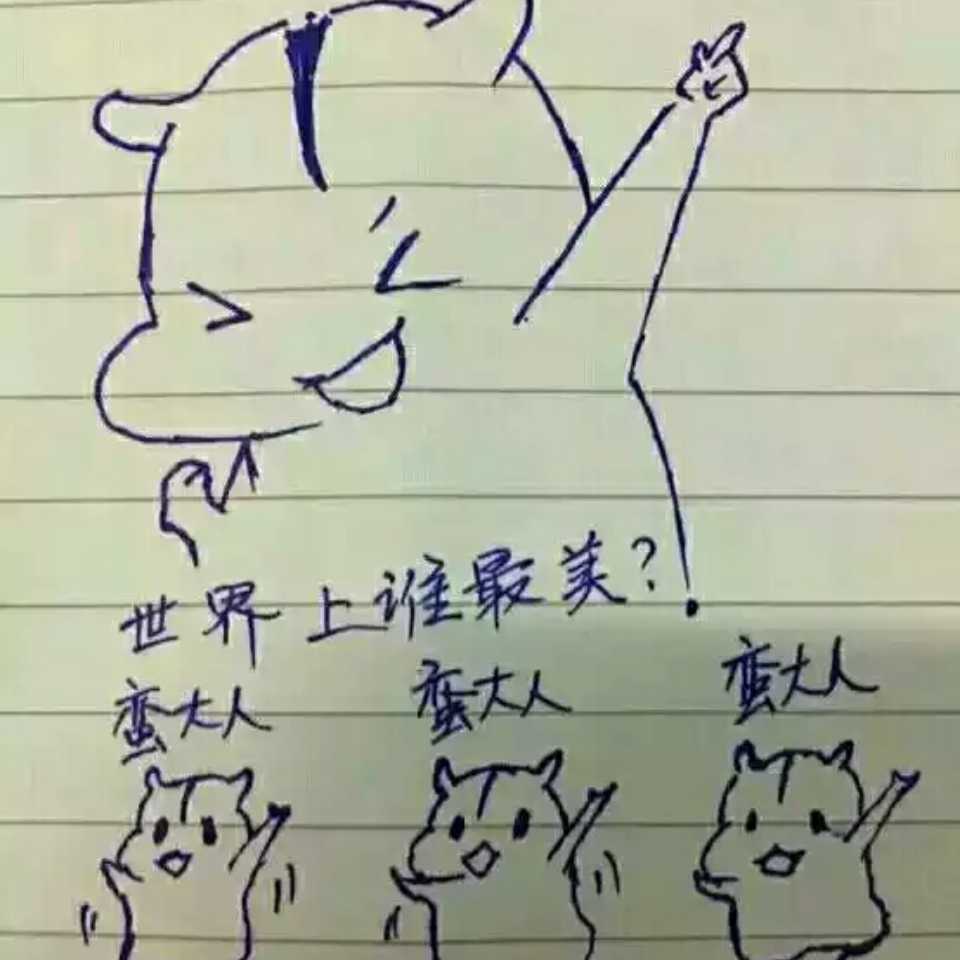 世界上谁最美?
蛮大人 蛮大人 蛮大人